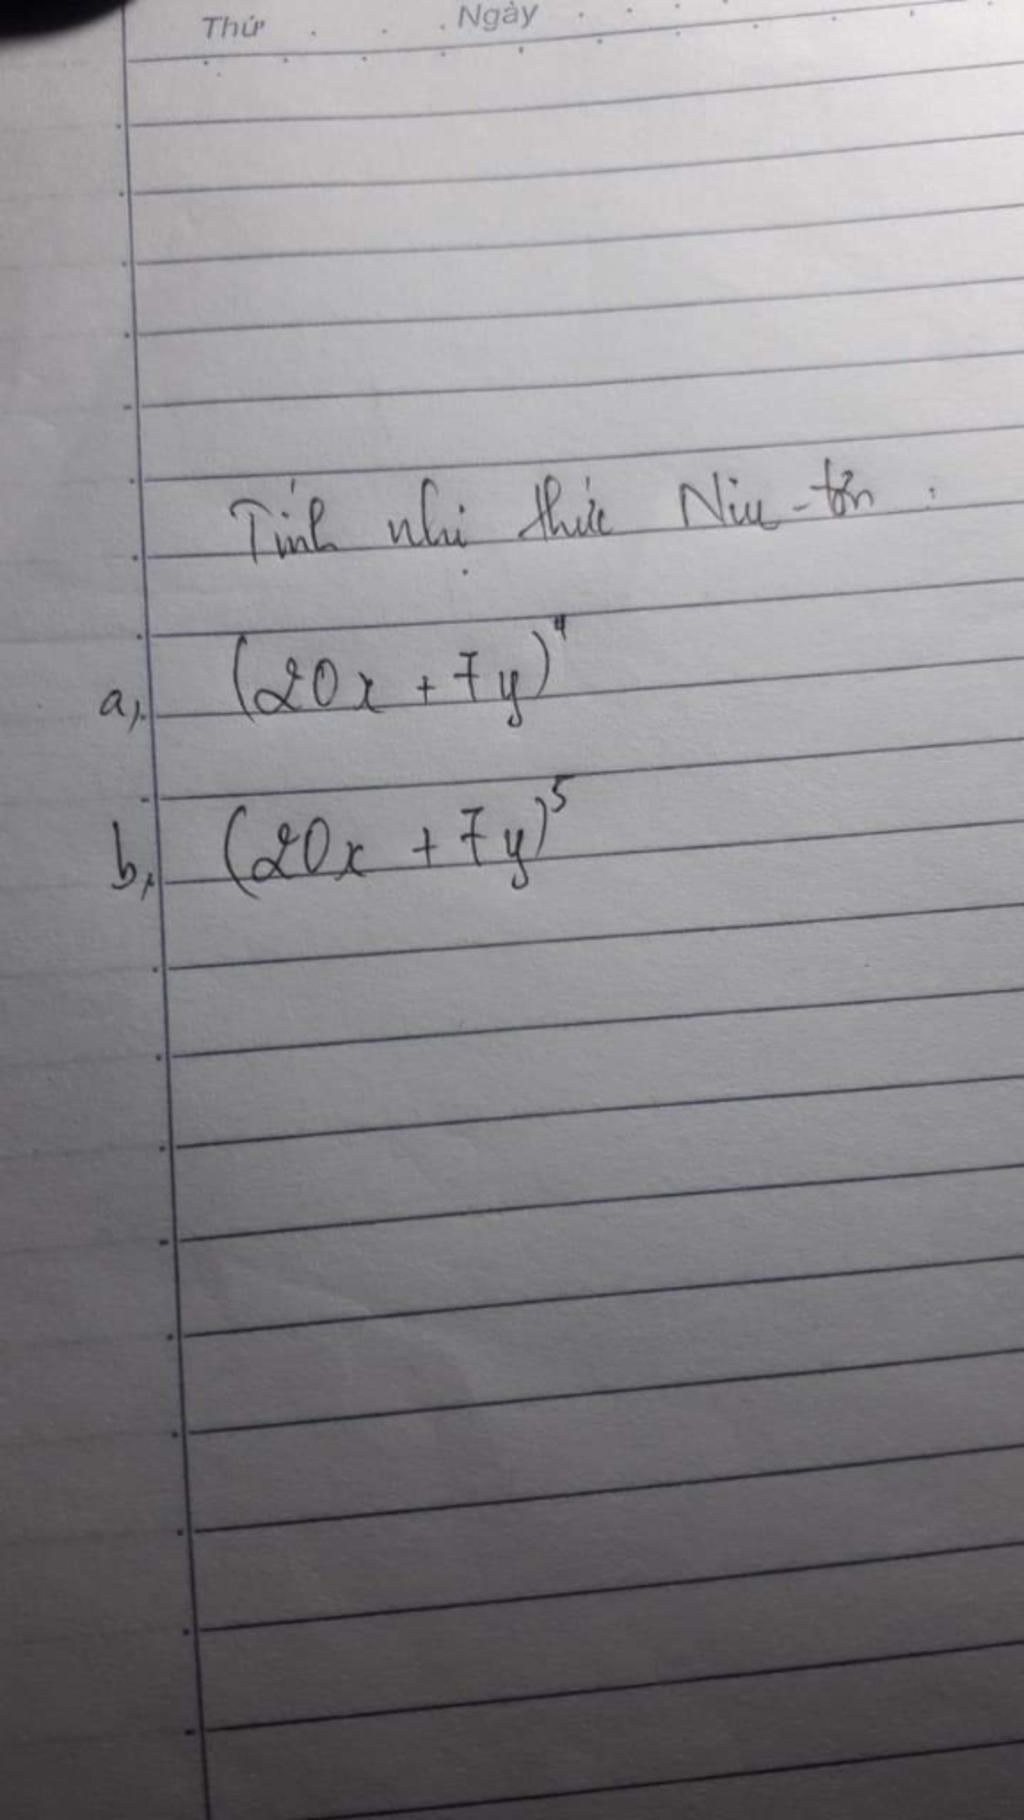 Thứ Ngày
Tính nhị thức Niu-tơn :
a, (20x + 7y)⁴
b, (20x + 7y)⁵